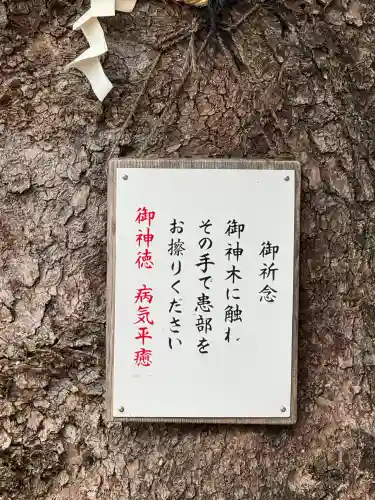 御祈念
御神木に触れ
その手で患部を
お擦りください
御神徳 病気平癒